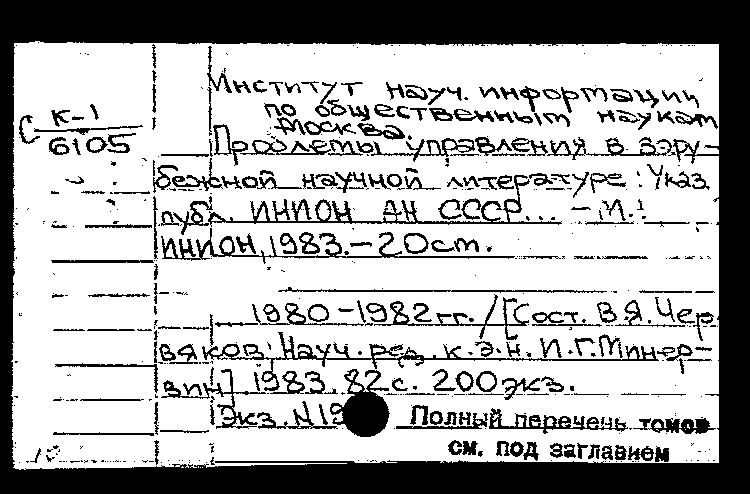 Институт науч. информации
по общественным наукам
Москва.
С К-1
6105
Проблемы управления в зару-
бежной научной литературе: Указ.
публ. ИНИОН АН СССР... – М.:
ИНИОН, 1983. – 20 см.
1980-1982 гг. / [Сост. В.Я. Чер-
вяков; Науч. ред. к.э.н. И.Г. Минер-
вин] 1983. 82 с. 200 экз.
Экз. N 19
Полный перечень томов
см. под заглавием